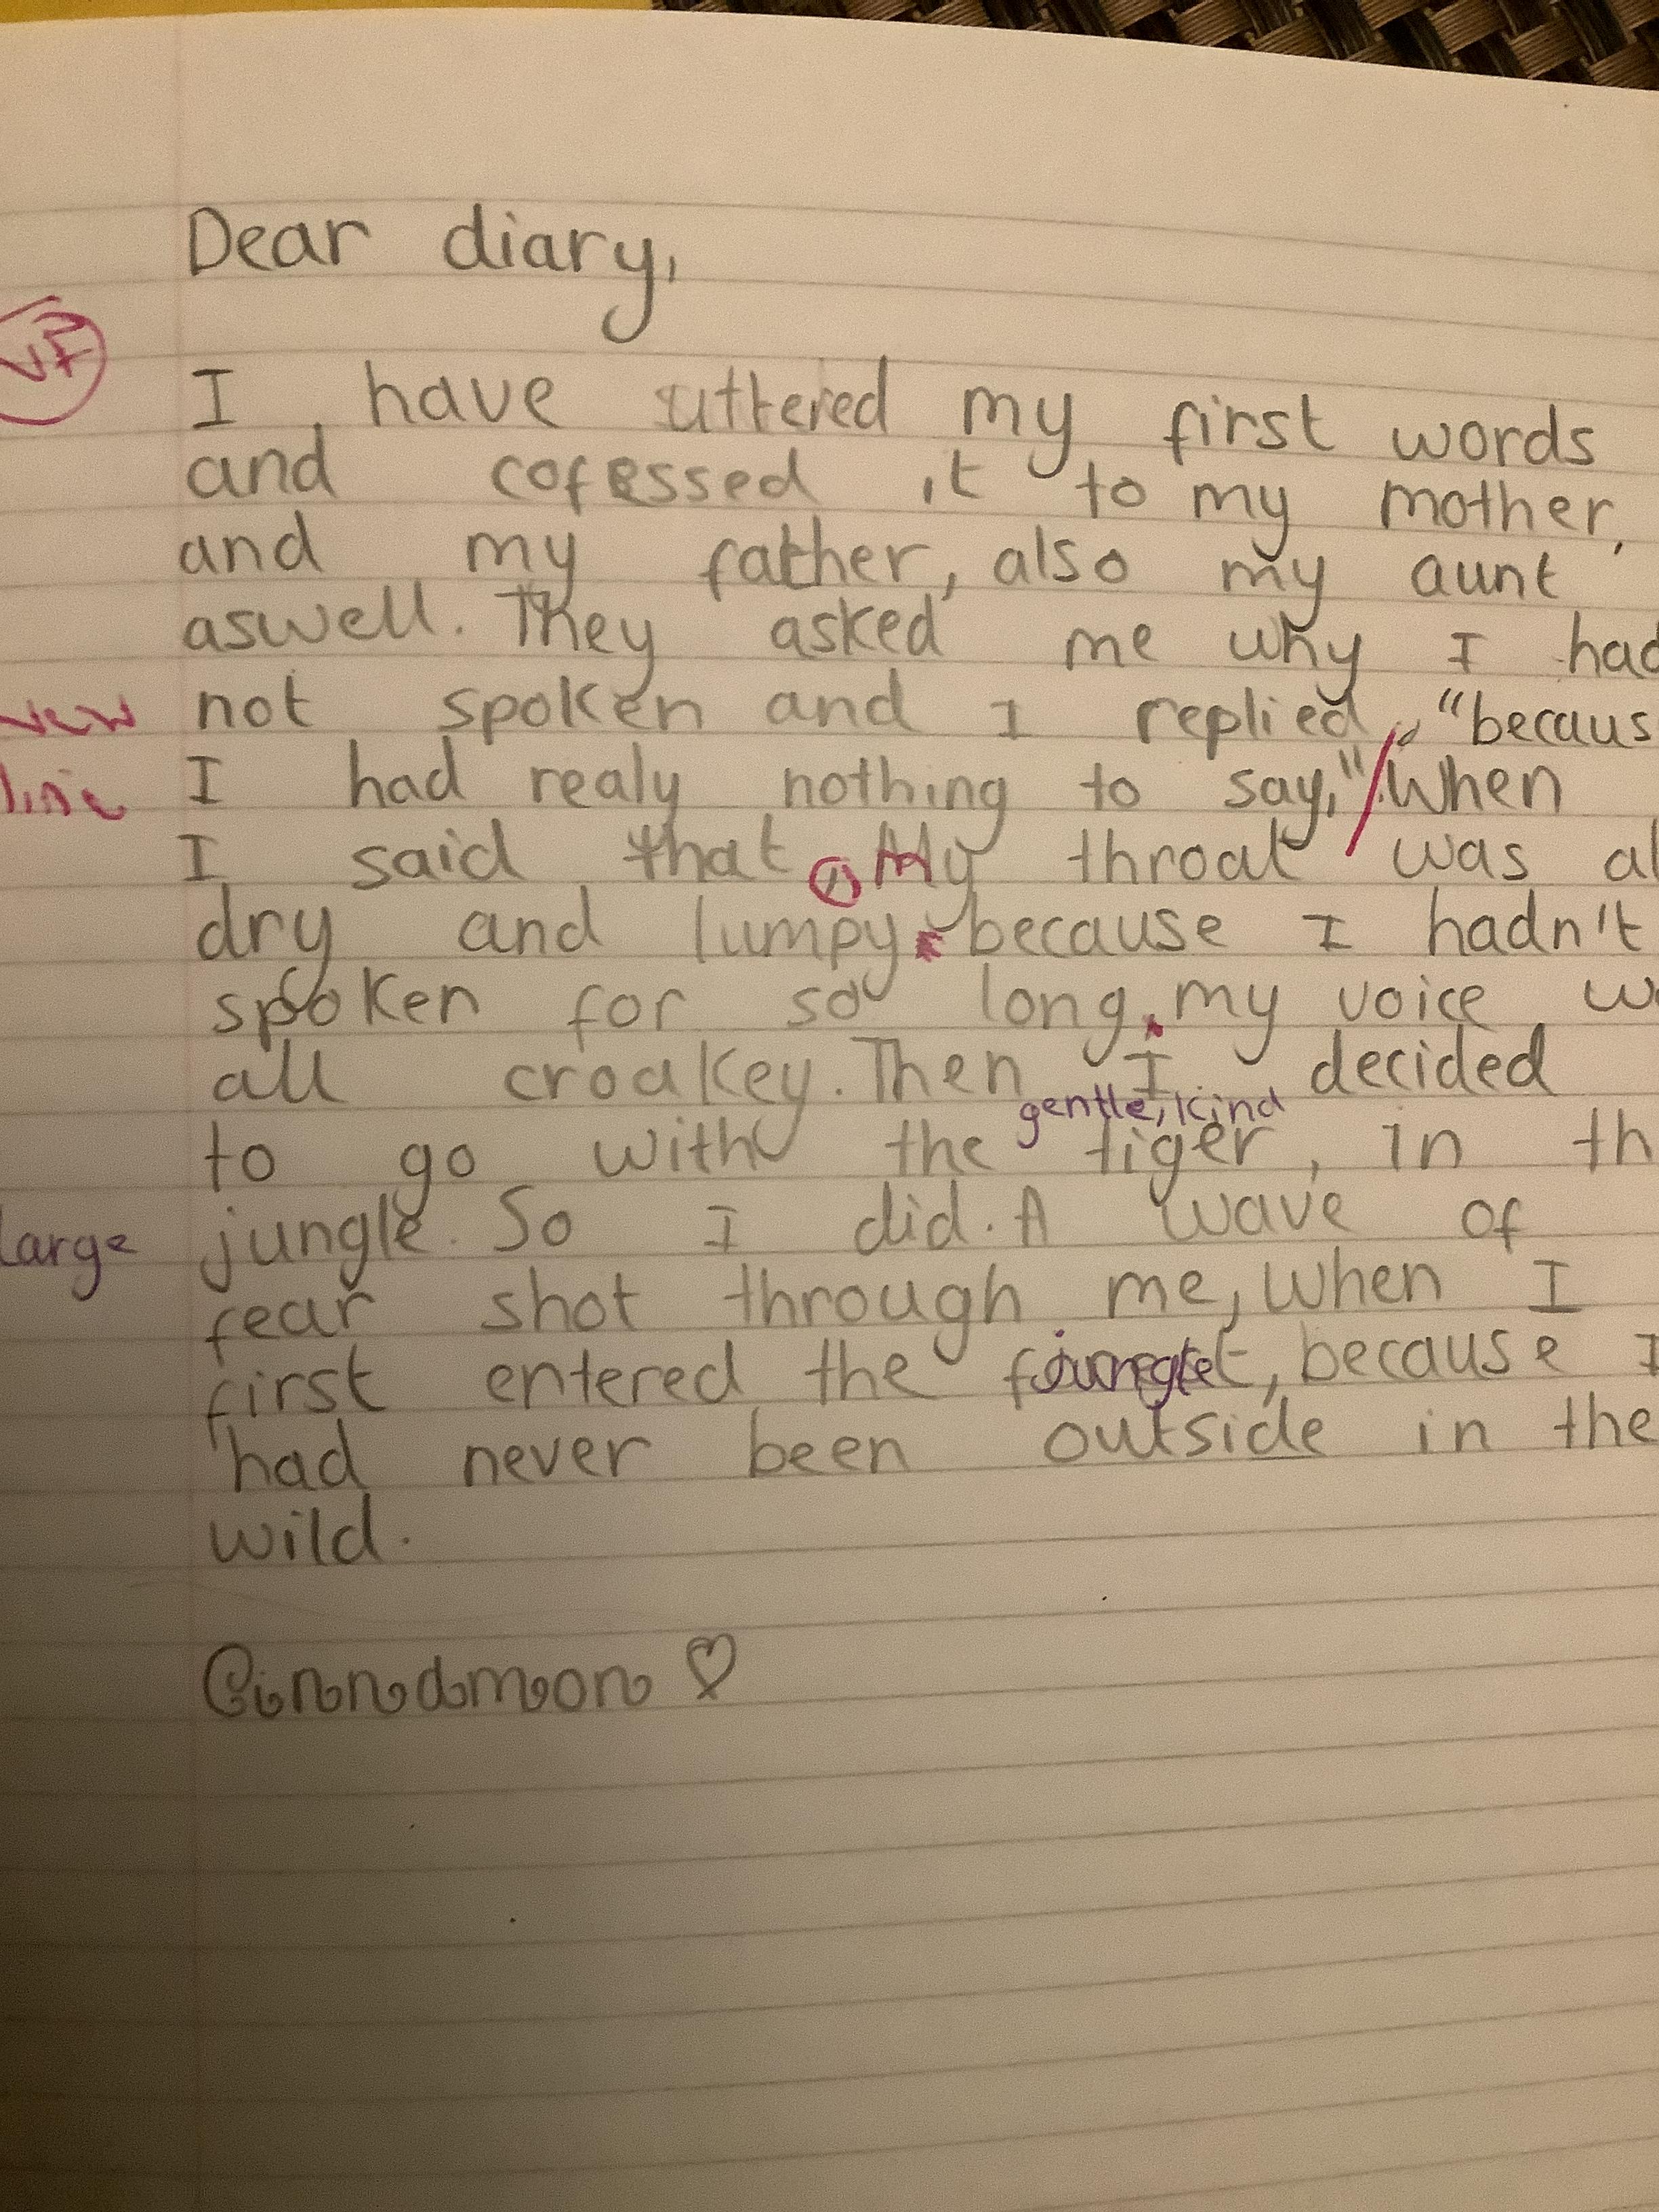 Dear diary,
VF
I have uttered my first words
and cofessed it to my mother,
and my father, also my aunt
aswell. They asked me why I had
new not spoken and I replied, "becaus
line I had realy nothing to say,"/When
I said that, my throat was al
dry and lumpy because I hadn't
spoken for so long. my voice w
all croakey. Then I decided
gentle, kind
to go with the tiger, in th
large jungle. So I did. A wave of
fear shot through me, When I
first entered the jungle, because I
had never been outside in the
wild.
Cinnamon ♡